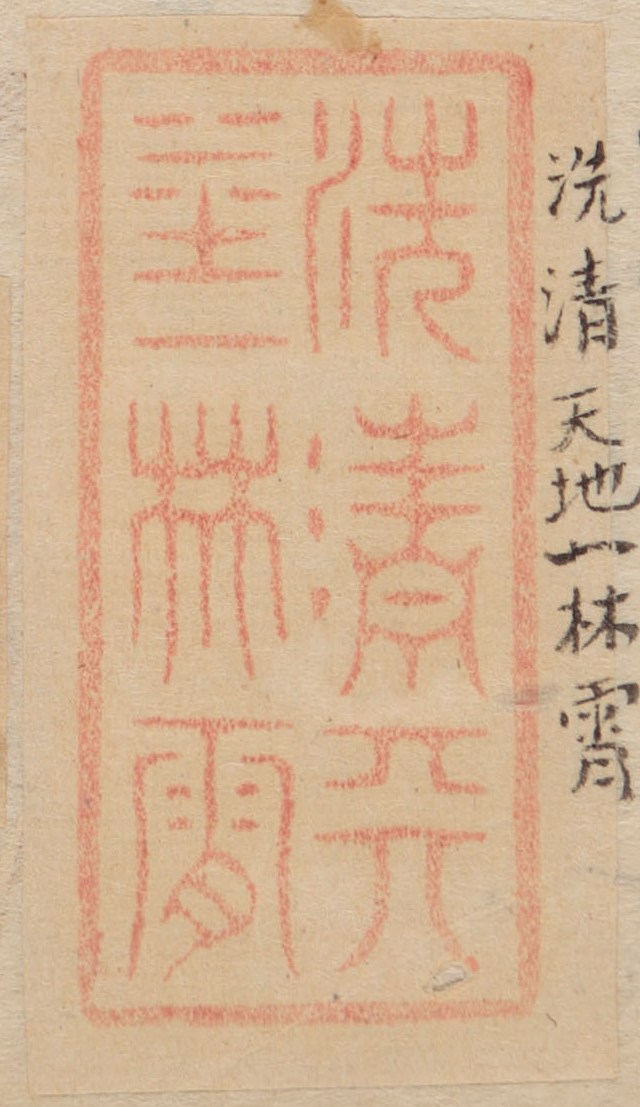 洗清天地一林霄
洗清天
地一林霄